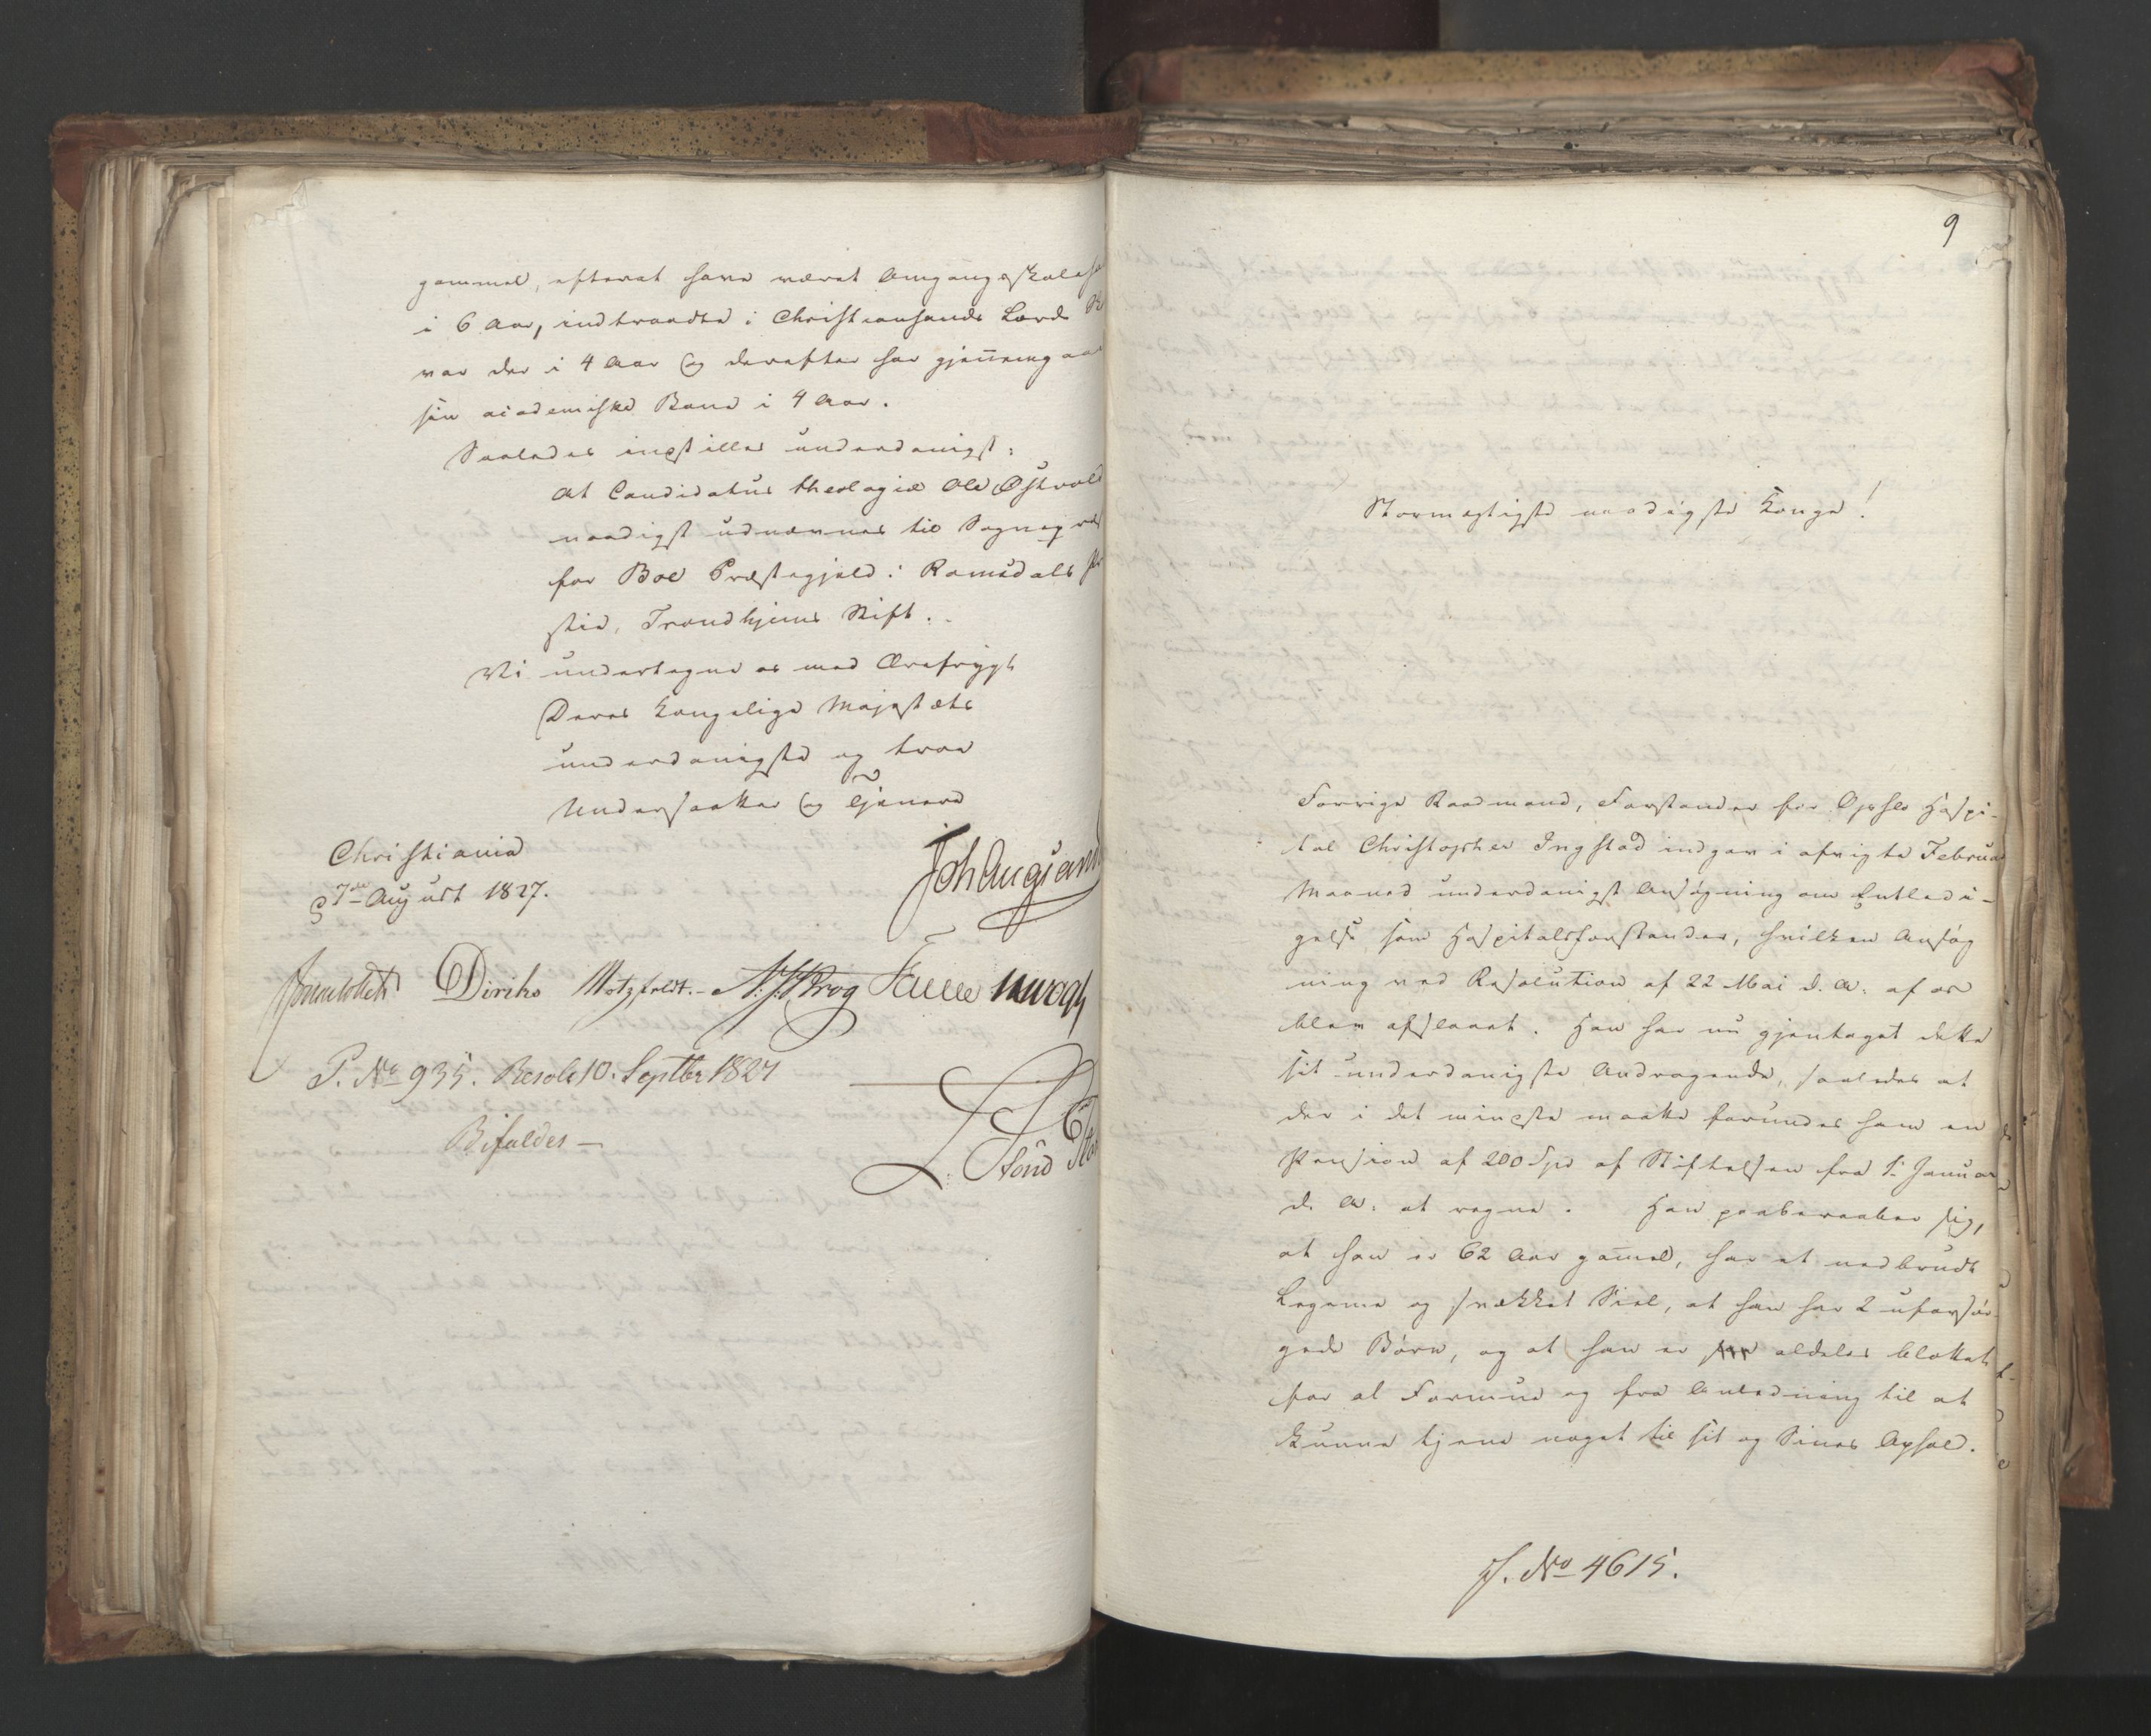 gammel, efterat have været Omgangsskole
i 6 Aar, indtraadte i Christiansands Lærde
var der i 4 Aar og derefter har gjen̄emg
sin academiske Bane i 4 Aar.
Saaledes indstilles underdanigst:
at Candidatus theologiæ Ole Østvold
naadigst udnævnes til Sognepræs
for Boe Præstegjeld i Romsdals
stie, Trondhjems Stift.
Vi undertegne os med Ærefrygt
Deres Kongelige Majestæts
underdanigste og troe
Undersaatter og Tjenere
Christiania
27de August 1827.
Joh Collett Diriks Motzfeldt. Krog Fasting
P. No 935. Resole 10. Septbr 1827
Bifaldes —
9
Stormægtigste naadigste Konge!
Forrige Raadmand, Forstander for Opslo Hospi-
tal Christopher Ingstad indgav i afvigte Februar
Maaned underdanigst Ansøgning om Entledi-
gelse som Hospitalsforstander, hvilken Ansøg
ning ved Resolution af 22 Mai d. A. af os
blev afslaaet. Han har nu gjentaget dette
sit underdanigste Andragende, saaledes at
der i det mindste maatte forundes ham en
Pension af 200 Spd af Stiftelsen fra 1. Januar
d. A. at regne. Han paaberaaber sig,
at han er 62 Aar gam̄el, har et nedbrudt
Legeme og svækket Siel, at han har 2 uforsør-
gede Børn, og at han er aldeles blottet
for al Formue og fra Anledning til at
kunne tjene noget til sit og Sines Ophold.
J. No 4615.